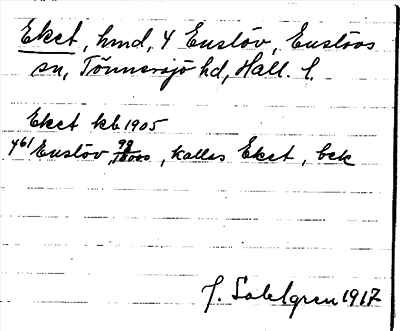 Eket, hmd, 4 Enslöv, Enslövs
sn, Tönnersjö hd, Hall. l.
Eket kb 1905
461 Enslöv, kallas Eket, bck
J. Sahlgren 1917